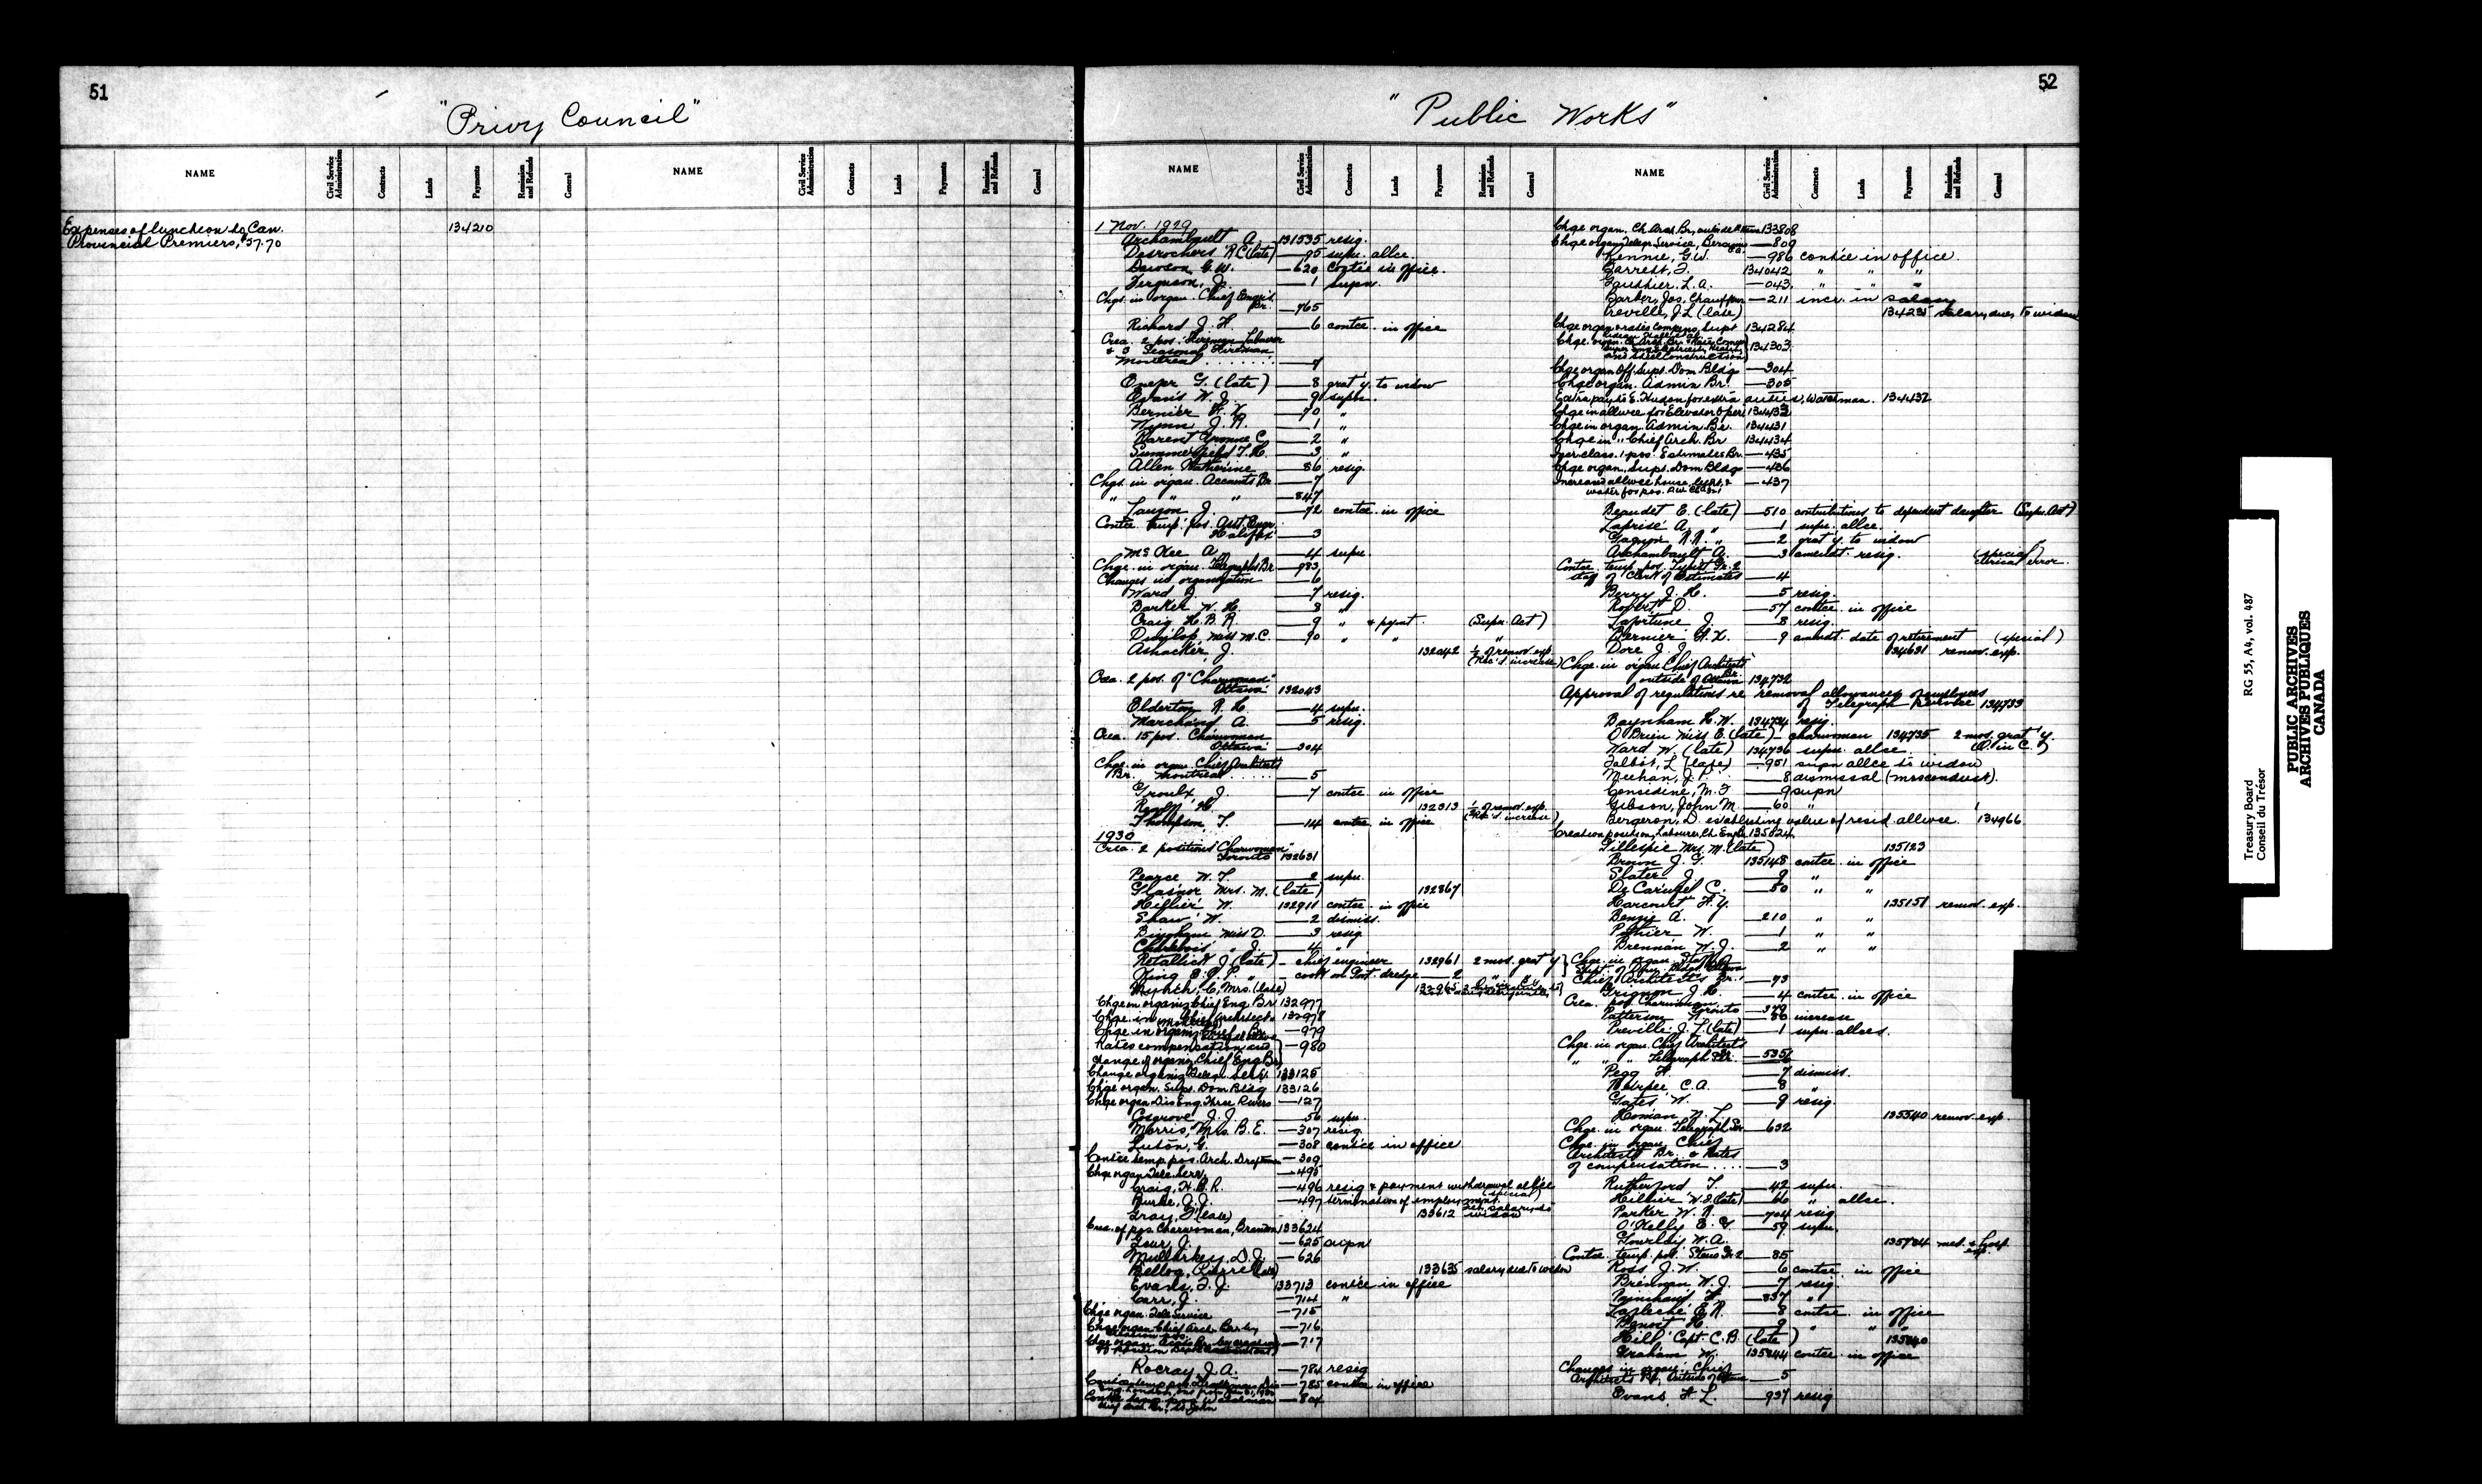 51
"Privy Council"
NAME Civil Service Administration Contracts Lands Payments Remission and Refunds General NAME Civil Service Administration Contracts Lands Payments Remission and Refunds General
Expenses of luncheon to Can. 134210
Provincial Premiers, $57.70
52
"Public Works"
NAME Civil Service Administration Contracts Lands Payments Remission and Refunds General NAME Civil Service Administration Contracts Lands Payments Remission and Refunds General
1 Nov. 1929
Archambault A. 131535 resig.
Desrochers R.C. (late) —95 supn. allce.
Dawson G.W. —620 contce in office.
Ferguson, J. —1 supn.
Chgs. in organ. Chief Engrs.
Br. —765
Richard J. H. 6 contce. in office
Crea. 2 pos. Fireman Labourer
& 3 Seasonal Fireman
Montreal —7
(late) —8 grat'y. to widow
Evans W. J. —9 supn.
Bernier F. X. —70 "
J. R. —1 "
Parent Yvonne C. —2 "
Summerfield T. H. —3 "
Allen Katherine —86 resig.
Chgs. in organ. Accounts Br. —7
" " " —847
Lauzon J. —72 contce. in office
Contce. temp. pos. Asst. Engr.
Halifax —3
McKee A. —4 supn.
Chge. in organ. Telegraphs Br. —983
Changes in organization —6
Ward D. —7 resig.
Barker W. H. —8 "
Craig H. B. R. —9 " & pymt. (Supn. Act)
Dunlop, Miss M. C. —90 " " "
J. 132042 ½ of remov. exp.
(Rec'd. increase)
Crea. 2 pos. of "Charwoman"
Ottawa 132043
Elderton R. H. —4 supn.
Marchand A. —5 resig.
Crea. 15 pos. Charwoman
Ottawa —304
Chge. in organ. Chief Architect's
Br. Montreal —5
Groulx J. —7 contce. in office
132313 ½ of remov. exp.
(Rec'd. increase)
Thompson T. —14 contce. in office
1930
Crea. 2 positions "Charwoman"
Toronto 132631
Pearce W. T. —2 supn.
Mrs. M. (late) 132867
Hillier W. 132911 contce. in office
Shaw W. —2 dismiss.
Bingham Miss D. —3 resig.
Charlebois " J. —4 "
Retallick J. (late) – chief engineer 132961 2 mos. grat'y
King " – cook on Govt. dredge —2 " "
C. Mrs. (late) 132965
Chge in organiz. Chief Eng. Br. 132977
Chge. in Chief Architects 132978
Chge in organiz. Chief —979
Rates compensation and —980
Change of organiz. Chief Eng Br.
Change organiz. Telegr. Serv. 133125
Chge organ. Supt. Dom Bldg 133126
Chge organ. Dis Eng. Three Rivers —127
Cosgrove J. J. —56 supn.
Morris, Mrs. B. E. —307 resig.
Luton, G. —308 contce in office
Contce temp pos. Arch. Draftsman —309
Chge organ Tele. Serv. —495
Craig, H. B. R. —496 resig & payment withdrawal allce
Burke, J. J. —497 termination of employment. (special)
Gray, G. (late) 133612 salary to widow
Crea. of pos. Charwoman, Brandon 133624
Geur, J. —625 supn
Mullarkey, D. J. —626
Bellog, Pierre (late) 133635 salary due to widow
Evans, F. J. 133713 contce in office
Carr, J. —714 "
Chge organ. Tele Service —715
Chge organ Chief Arch. Br. by —716
—717
Rocray J. A. —784 resig
—785 contce in office
—804
Chge organ. Ch. Arch. Br., outside Ottawa 133808
Chge organ. Telegr. Service, —809
Rennie, G.W. —986 contce in office.
Garrett, J. 134042 " " "
Gauthier. L. A. —043 " " "
Barber, Jos, Chauffeur —211 incr. in salary
Preville, J. L. (late) 134231 salary due to widow
Chge organ & rates compens. Supt 134284
134303
and Steel Construction
Chge organ Off. Supt. Dom Bldgs —304
Chge organ. Admin Br. —305
Extra pay to E. Hudson for extra duties, Watchman. 134432
Chge in allwce for Elevator Oper. 134433
Chge in organ. Admin Br. 134431
Chge in " Chief Arch. Br 134434
class. 1 pos. Estimates Br. —435
Chge organ, Supt. Dom Bldgs —436
Increased allwce house, light, & —437
water for pos.
Beaudet E. (late) —510 contributions to dependent daughter (Supn. Act)
Laprise A. " —1 supn. allce.
Gagnon " —2 grat'y. to widow
Archambault A. —3 amendt. resig. (special)
clerical error.
Contce. temp. pos. Typist Gr. 2
staff of Clerk of Estimates —4
Berry J. H. —5 resig.
Robert D. —57 contce. in office
Lafortune J. —8 resig.
Bernier F. X. —9 amendt. date of retirement (special)
Dore J. J. 134631 remov. exp.
Chge. in organ Chief Architects'
Br. outside of Ottawa 134732
Approval of regulations re removal allowances of employees
of Telegraph Service 134733
Baynham H. W. 134734 resig.
O'Brien Miss E. (late) – charwoman 134735 2 mos. grat'y.
(O. in C.)
Ward W. (late) 134736 supn. allce.
Talbot, L. (late) —951 supn allce to widow
Meehan, J. P. —8 dismissal (misconduct).
Considine, M. J —9 supn
Gibson, John M. —60 "
Bergeron, D. establishing value of resid. allwce. 134966
Creation position, Labourer, Ch. Engr. 135024
Gillespie Mrs. M. (late) 135123
Brown J. G. 135148 contce. in office
Slater J. —9 " "
De Carufel C. —50 " "
Harcourt F. Y. 135151 remov. exp.
Benzie A. —210 " "
Pothier W. —1 " "
Brennan W. J. —2 " "
Chge. in organ. Staff of
Supt. of Dom. Bldgs. Ottawa
Chief Architect's Br. —73
Grignon J. H. —4 contce. in office
Crea. pos. Charwoman,
Toronto —379
Patterson —80 increase
Preville J. L. (late) —1 supn. allces.
Chge. in organ. Chief Architect's
" " " Telegraph Ser. —5356
Pegg H. —7 dismiss.
C. A. —8 "
Gates W. —9 resig.
Homan W. L. 135540 remov. exp.
Chge. in organ. Telegraph Ser. —632
Chge. in organ. Chief
Architect's Br. & Rates
of compensation —3
Rutherford T. —42 supn.
Hillier W. J. (late) —66 " allce.
Parker W. R. —704 resig.
O'Kelly E. G. —59 supn.
Gourlay W. A. 135784 med. & hosp.
exp.
Contce. temp. pos. Steno Gr. 2 —85
Ross J. W. —6 contce. in office
Brennan W. J. —7 resig.
—837 "
Lafleche E. R. —8 contce. in office
Benoit H. —9 " " "
Hill, Capt. C. B. (late) 135840
Graham W. 135844 contce. in office
Changes in organ. Chief
Architects Br., Outside of Ottawa —5
Evans, F. L. —937 resig
Treasury Board RG 55, A4, vol. 487
Conseil du Trésor
PUBLIC ARCHIVES
ARCHIVES PUBLIQUES
CANADA